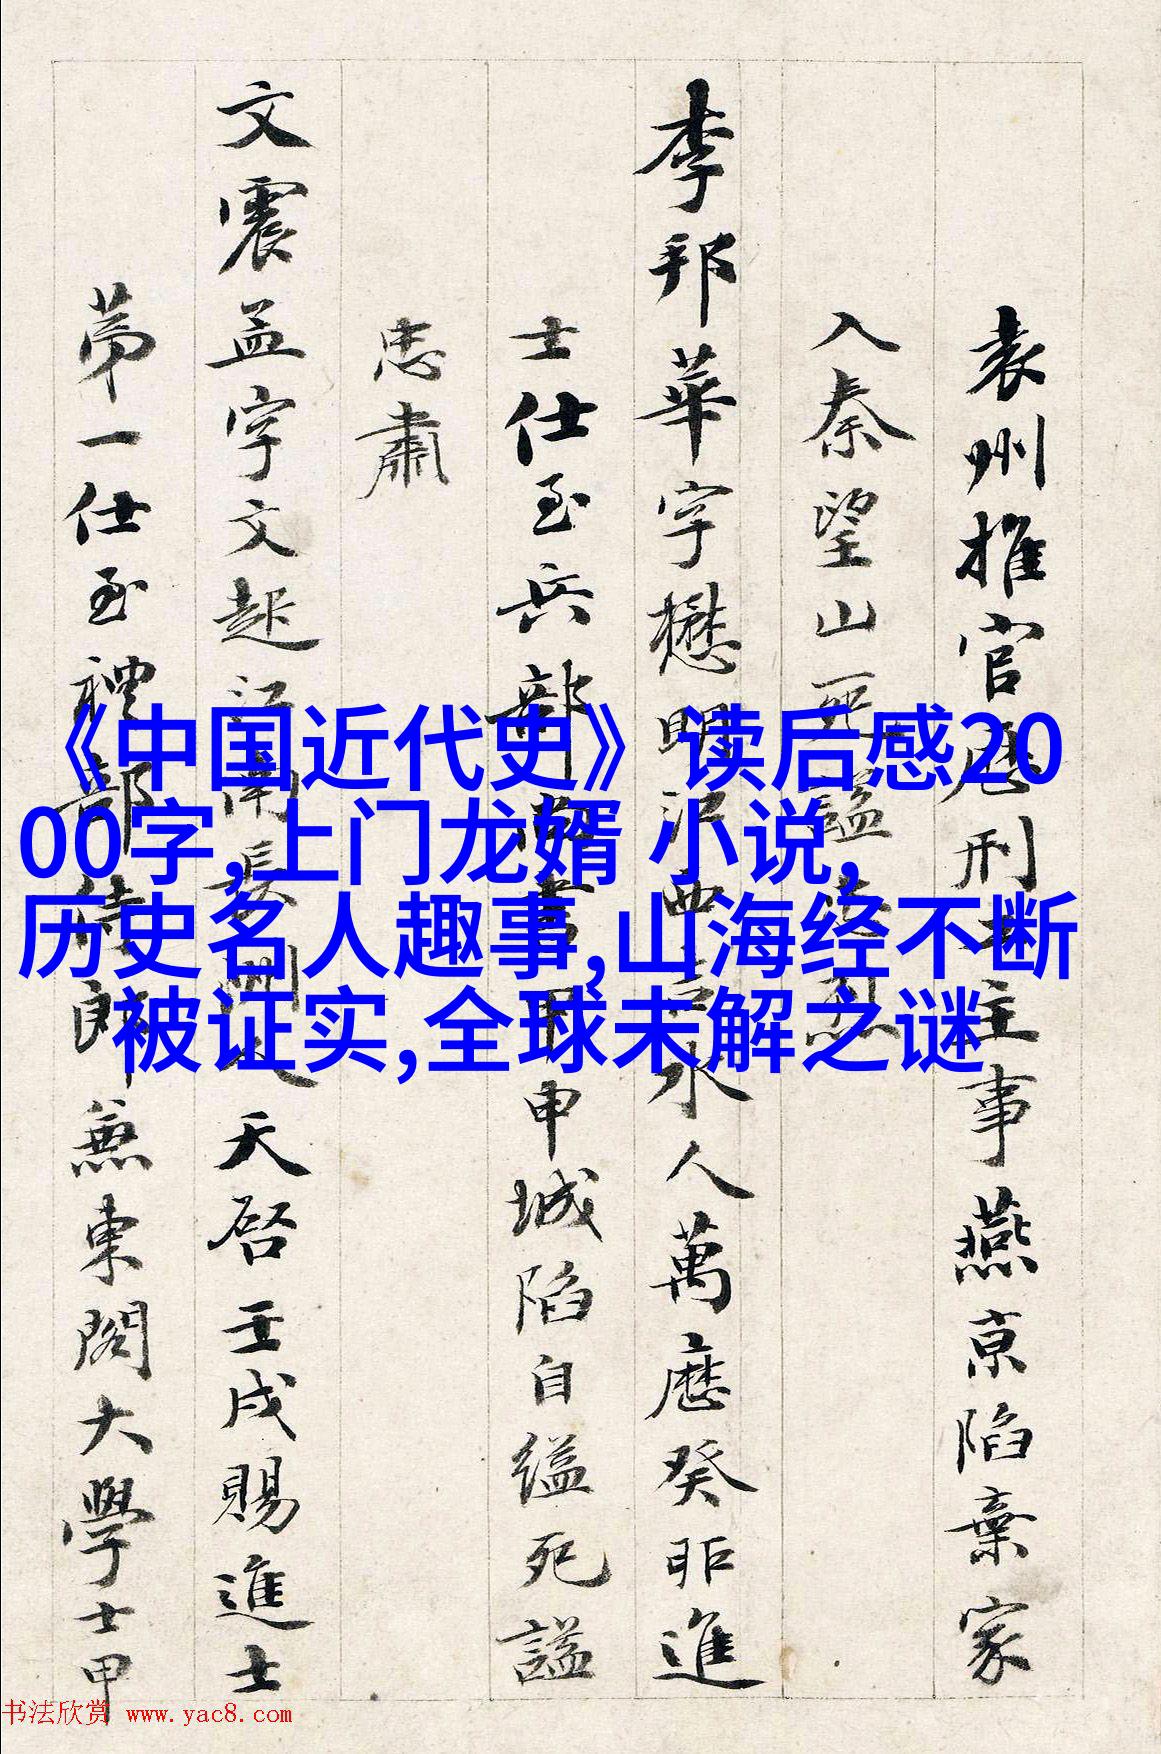 《中国近代史》读后感20
00字,上门龙婿 小说,
历史名人趣事,山海经不断
被证实,全球未解之谜
袁州推官歷刑主事燕京陷棄家
入秦望山死謚烈
李邦華字懋明江西吉水人萬曆癸卯進
士仕至兵部尚書甲申城陷自縊死謚
忠肅
文震孟字文起江南長洲人天啓壬戌賜進士
第一仕至禮部侍郎兼東閣大學士甲
书法欣赏 www.yac8.com